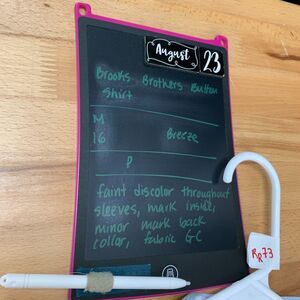 August 23
Brooks Brothers Button
shirt
M
16 Breeze
P
faint discolor throughout
sleeves, mark inside,
minor mark back
collar, fabric GC
RR73